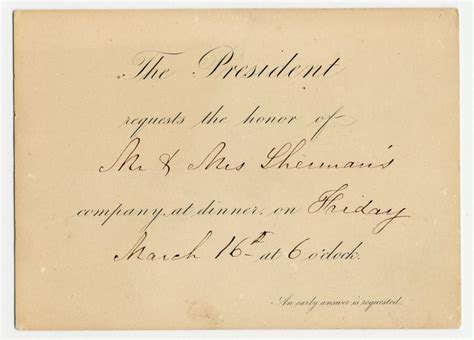 The President
requests the honor of
Mr & Mrs Sherman's
company at dinner, on Friday
March 16th at 6 o'clock.
An early answer is requested.